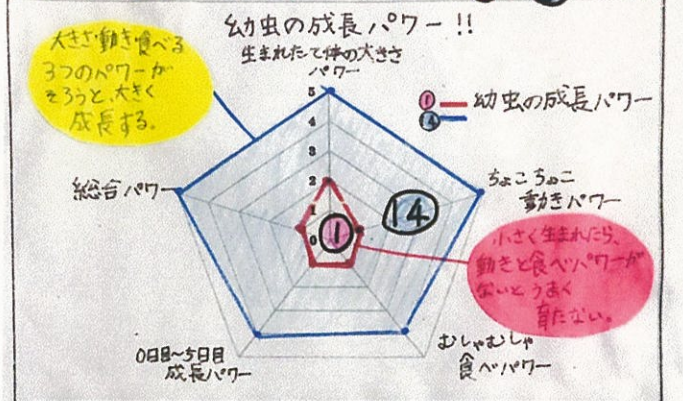 幼虫の成長パワー!!
大きさ・動き・食べる
3つのパワーが
そろうと、大きく
成長する。
生まれたて体の大きさ
パワー
5
4
3
2
1
0
① 幼虫の成長パワー
⑭
総合パワー
ちょこちょこ
動きパワー
①
⑭
小さく生まれたら、
動きと食べパワーが
ないとうまく
育たない。
0日目~5日目
成長パワー
むしゃむしゃ
食べパワー